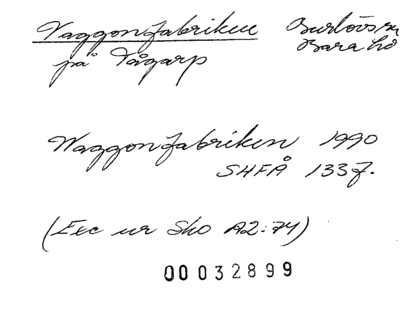 Vaggonfabriken Burlövs sn
på Tågarp Bara hd
Waggonfabriken 1990
SHFÅ 1337.
(Exc ur Sho A2:74)
00032899